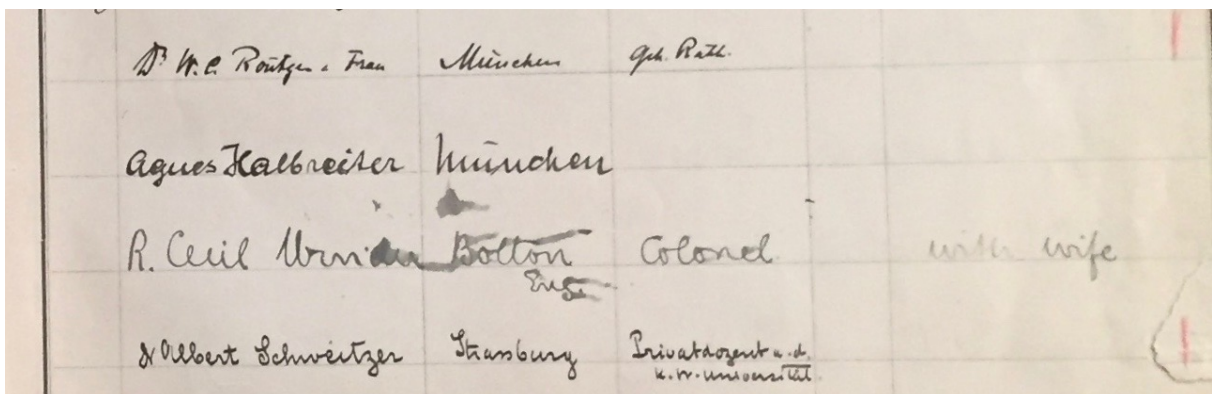 Dr W. C. Röntgen u. Frau München Geh. Rath.
Agnes Halbreiter München
R. Cecil Bolton Colonel with wife
Eng.
Dr Albert Schweitzer Strassburg Privatdozent a. d.
K. W. Universität